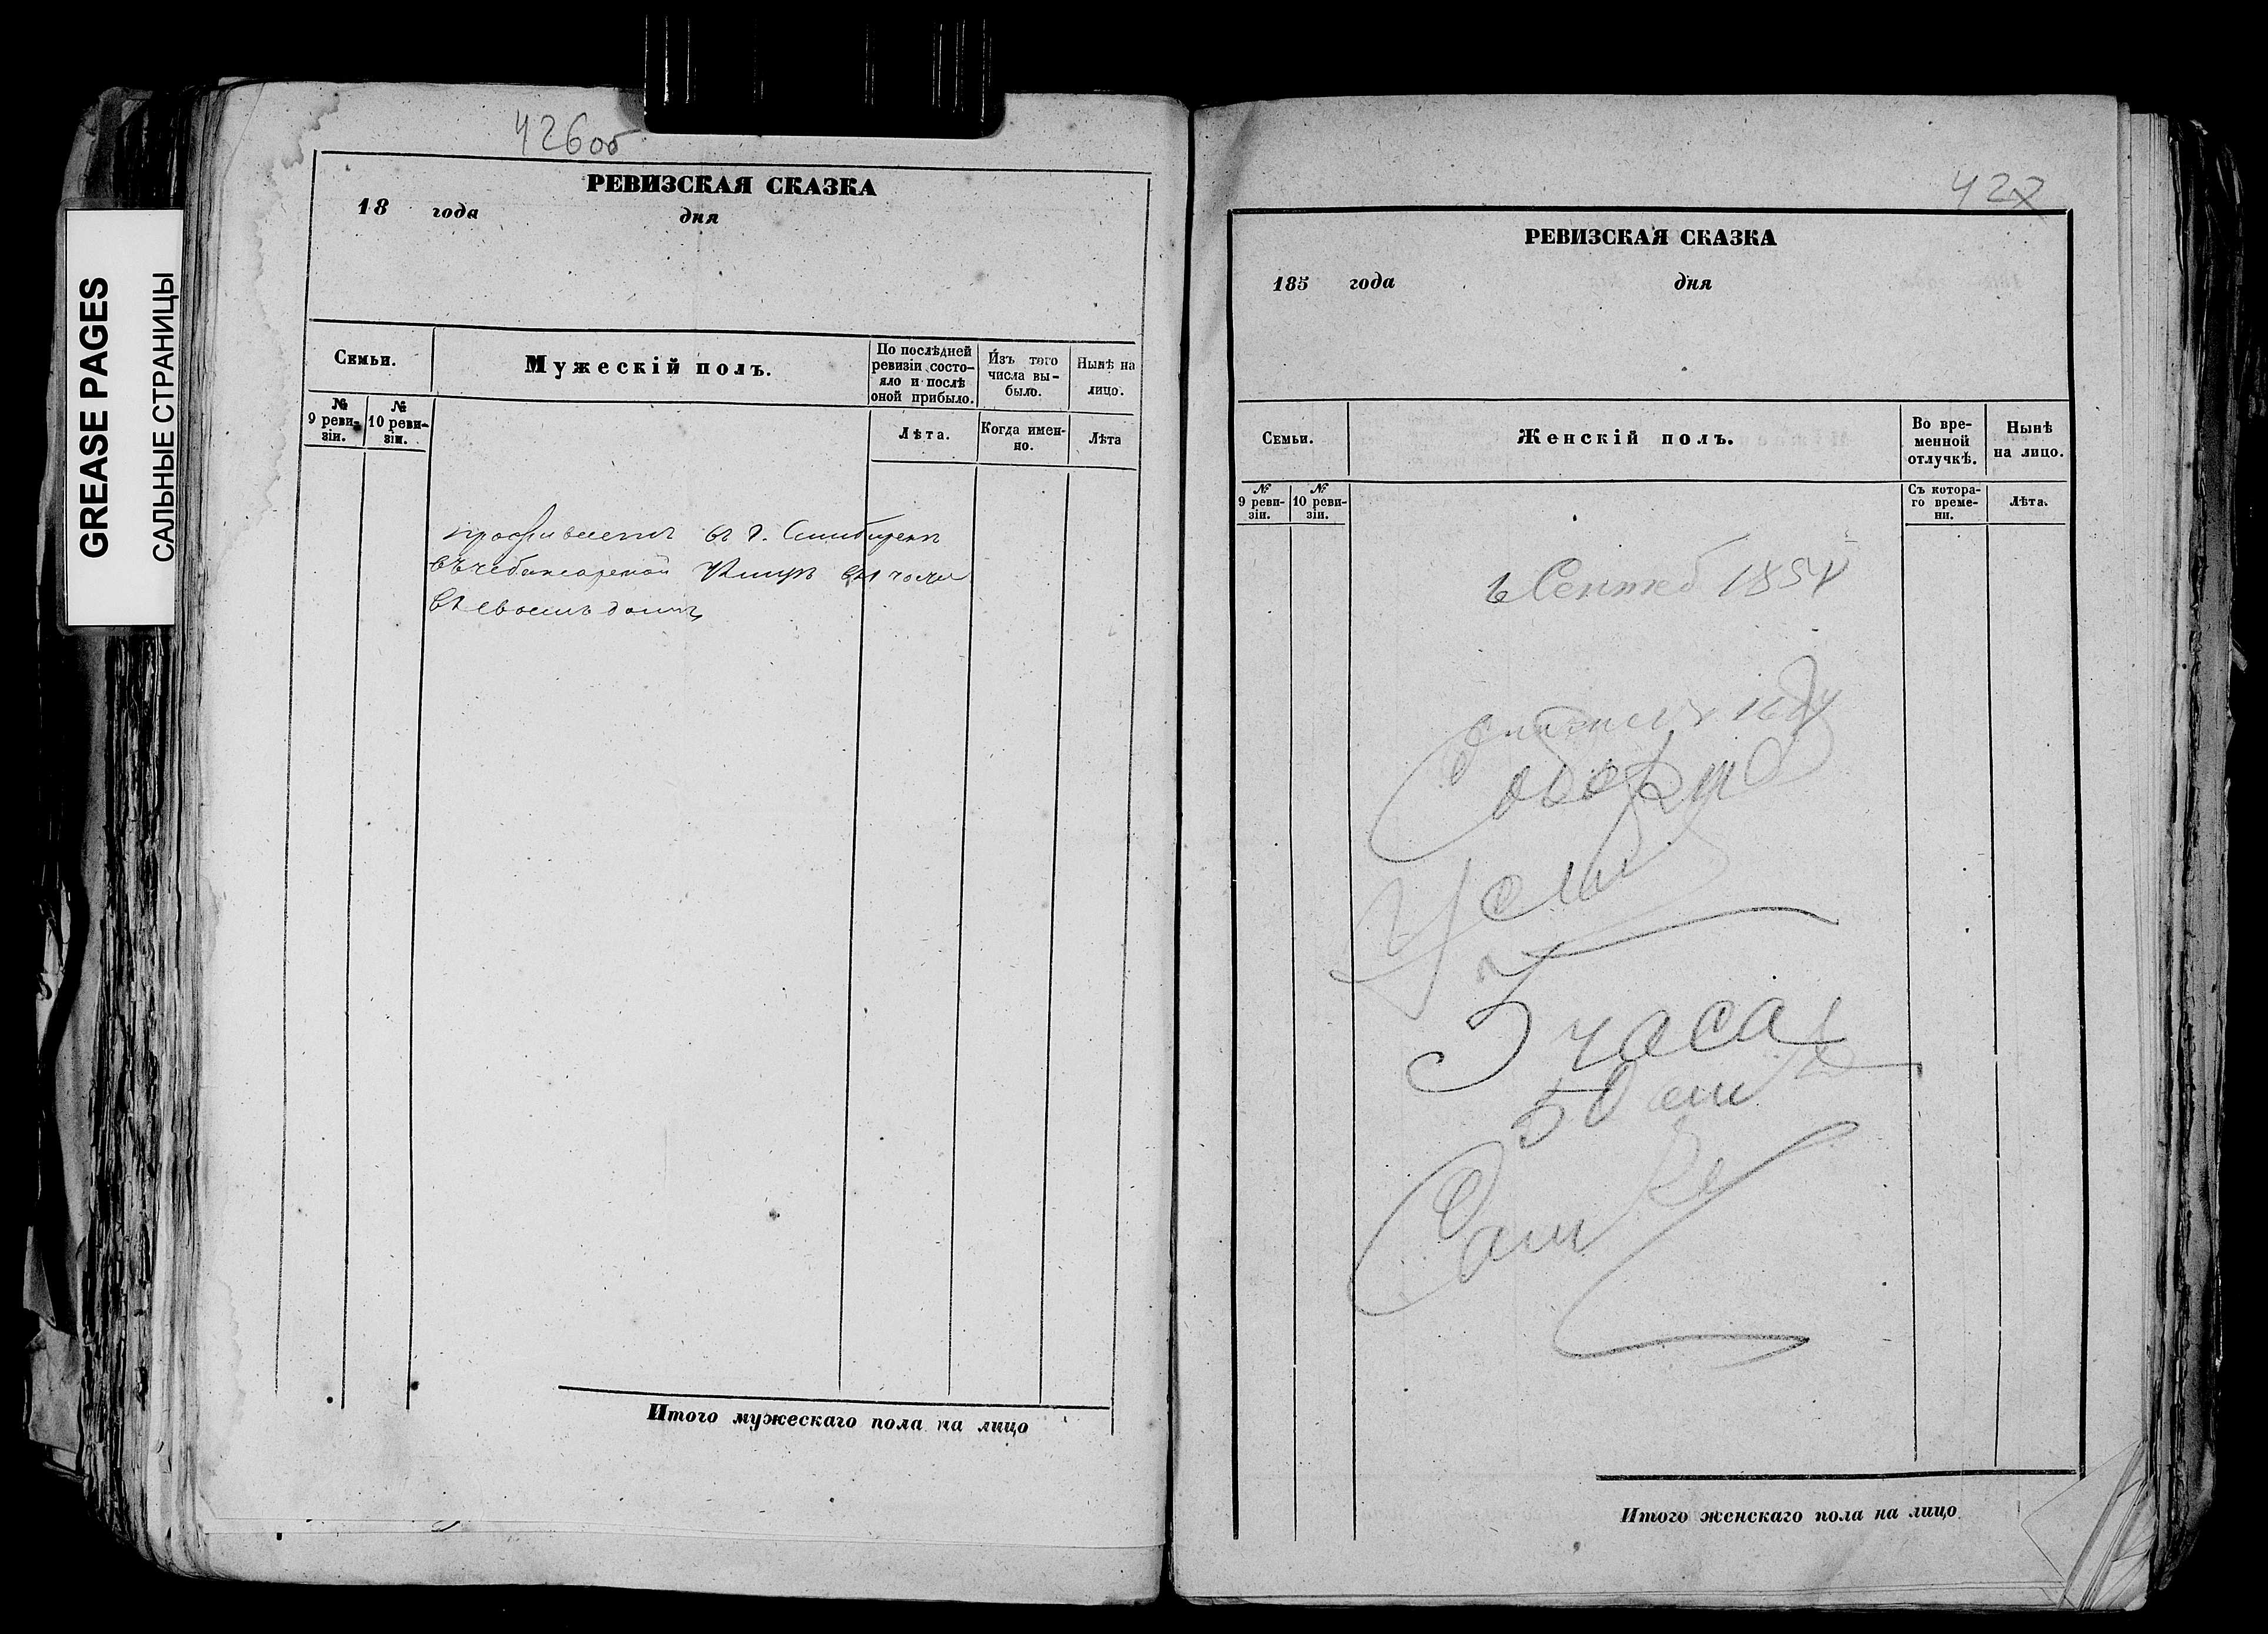 GREASE PAGES
САЛЬНЫЕ СТРАНИЦЫ
426об
РЕВИЗСКАЯ СКАЗКА
18 года дня
Семьи.
Мужескій полъ.
По послѣдней ревизіи состо-
яло и послѣ
оной прибыло.
Изъ того
числа вы-
было.
Нынѣ на
лицо.
№
9 реви-
зіи.
№
10 реви-
зіи.
Лѣта.
Когда имен-
но.
Лѣта
проживаетъ въ г. Симбирскѣ
въ 1 части
въ своемъ домѣ
Итого мужескаго пола на лицо
427
РЕВИЗСКАЯ СКАЗКА
185 года дня
Семьи.
Женскій полъ.
Во вре-
менной
отлучкѣ.
Нынѣ
на лицо.
№
9 реви-
зіи.
№
10 реви-
зіи.
Съ котора-
го време-
ни.
Лѣта.
Сентяб 185
часа
50
Итого женскаго пола на лицо